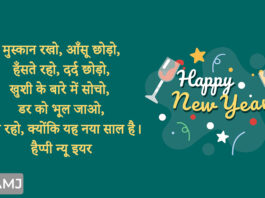 मुस्कान रखो, आँसू छोड़ो,
हँसते रहो, दर्द छोड़ो,
खुशी के बारे में सोचो,
डर को भूल जाओ,
रहो, क्योंकि यह नया साल है।
हैप्पी न्यू इयर
Happy
New Year
AMJ